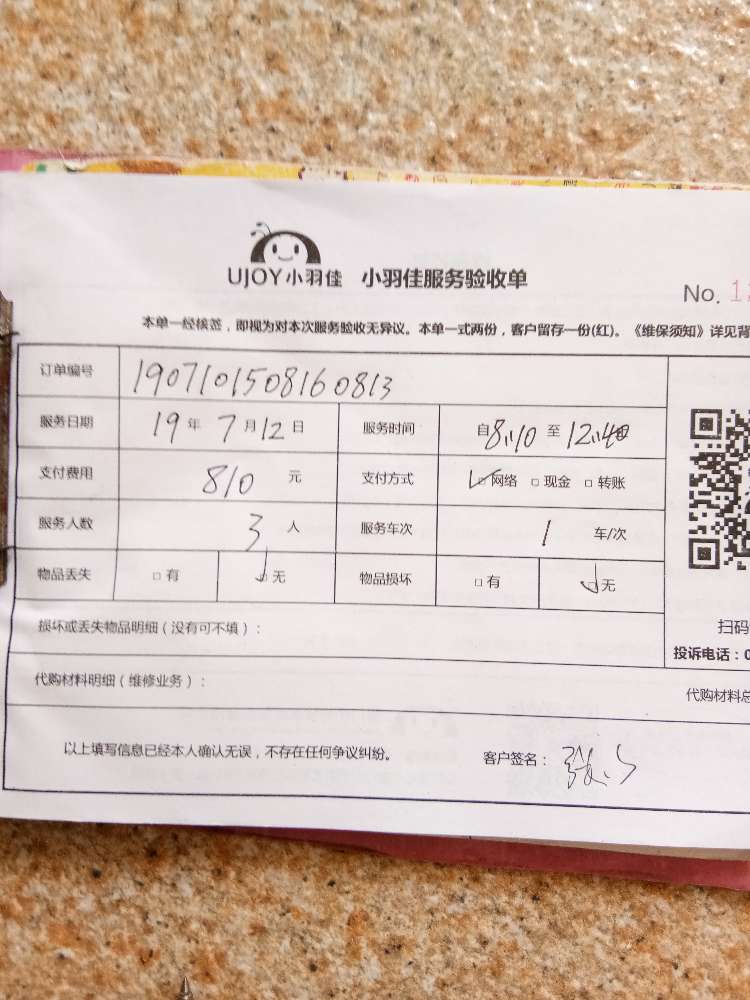 UJOY小羽佳 小羽佳服务验收单
No. 1
本单一经核签，即视为对本次服务验收无异议。本单一式两份，客户留存一份(红)。《维保须知》详见背
订单编号 1907101508160813
服务日期 19年 7月12日 服务时间 自8:10至12:40
支付费用 810 元 支付方式 ☑网络 □现金 □转账
服务人数 3 人 服务车次 1 车/次
物品丢失 □有 ☑无 物品损坏 □有 ☑无
损坏或丢失物品明细（没有可不填）：
扫码
投诉电话：0
代购材料明细（维修业务）：
代购材料总
以上填写信息已经本人确认无误，不存在任何争议纠纷。 客户签名：